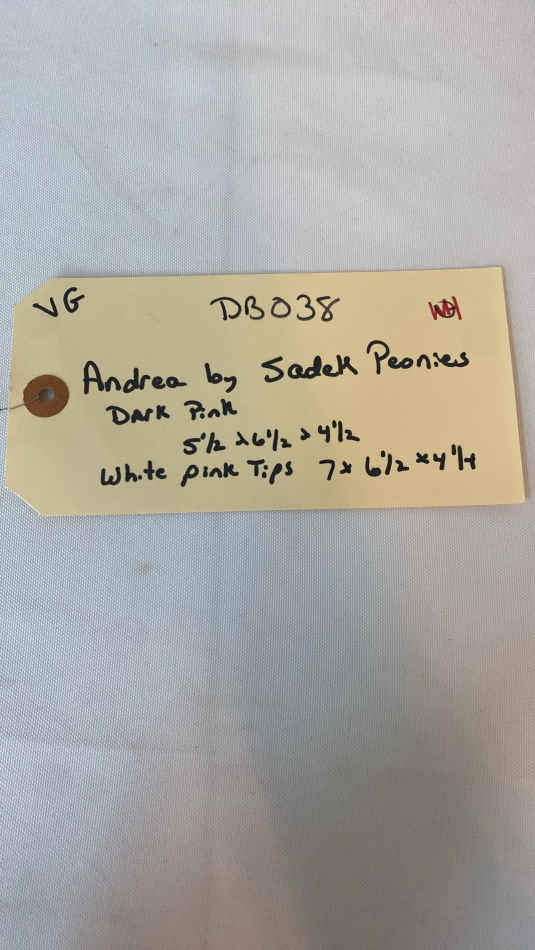 VG DB038
Andrea by Sadek Peonies
Dark Pink
5 1/2 x 6 1/2 x 4 1/2
White pink Tips 7 x 6 1/2 x 4 1/4